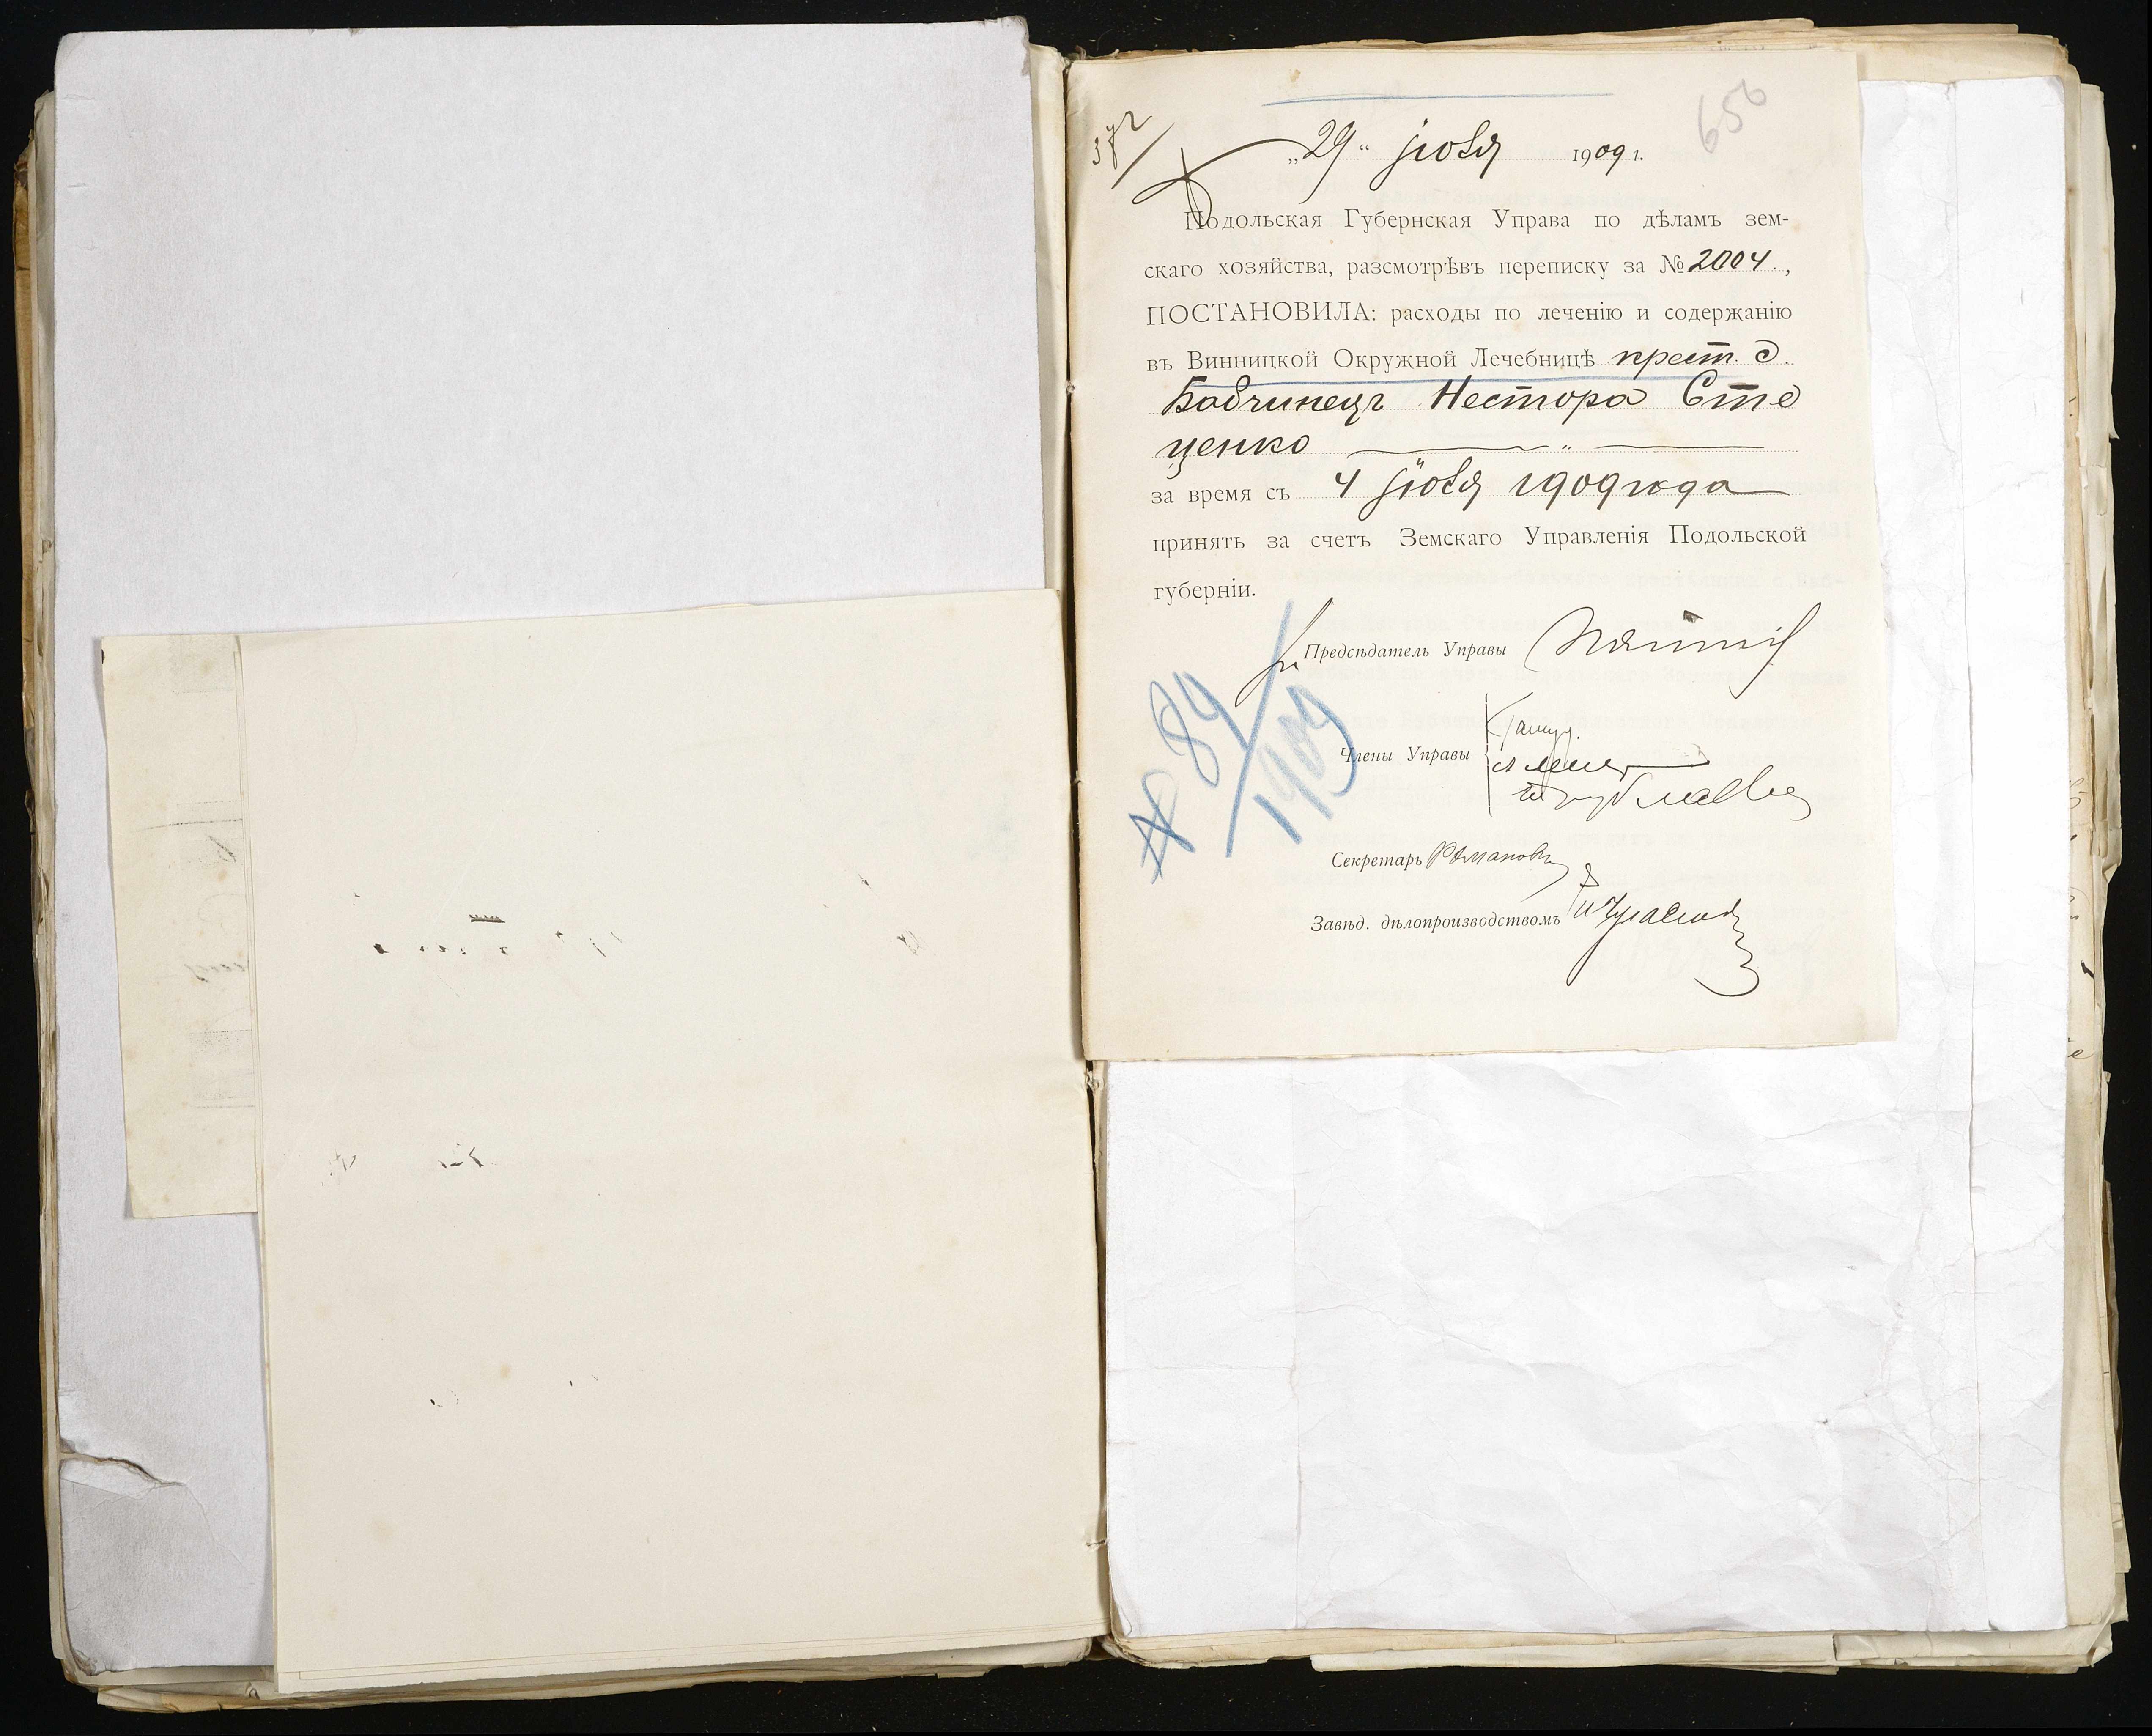 372
650
„29“ іюля 1909 г.
Подольская Губернская Управа по дѣламъ зем-
скаго хозяйства, разсмотрѣвъ переписку за № 2004.,
ПОСТАНОВИЛА: расходы по леченію и содержанію
въ Винницкой Окружной Лечебницѣ крест. д.
Бабчинецъ Нестора Сте
ценко — „ —
за время съ 4 іюля 1909 года
принять за счетъ Земскаго Управленія Подольской
губерніи.
Предсѣдатель Управы
№ 89/1909
Члены Управы
Секретарь Романовъ
Завѣд. дѣлопроизводствомъ